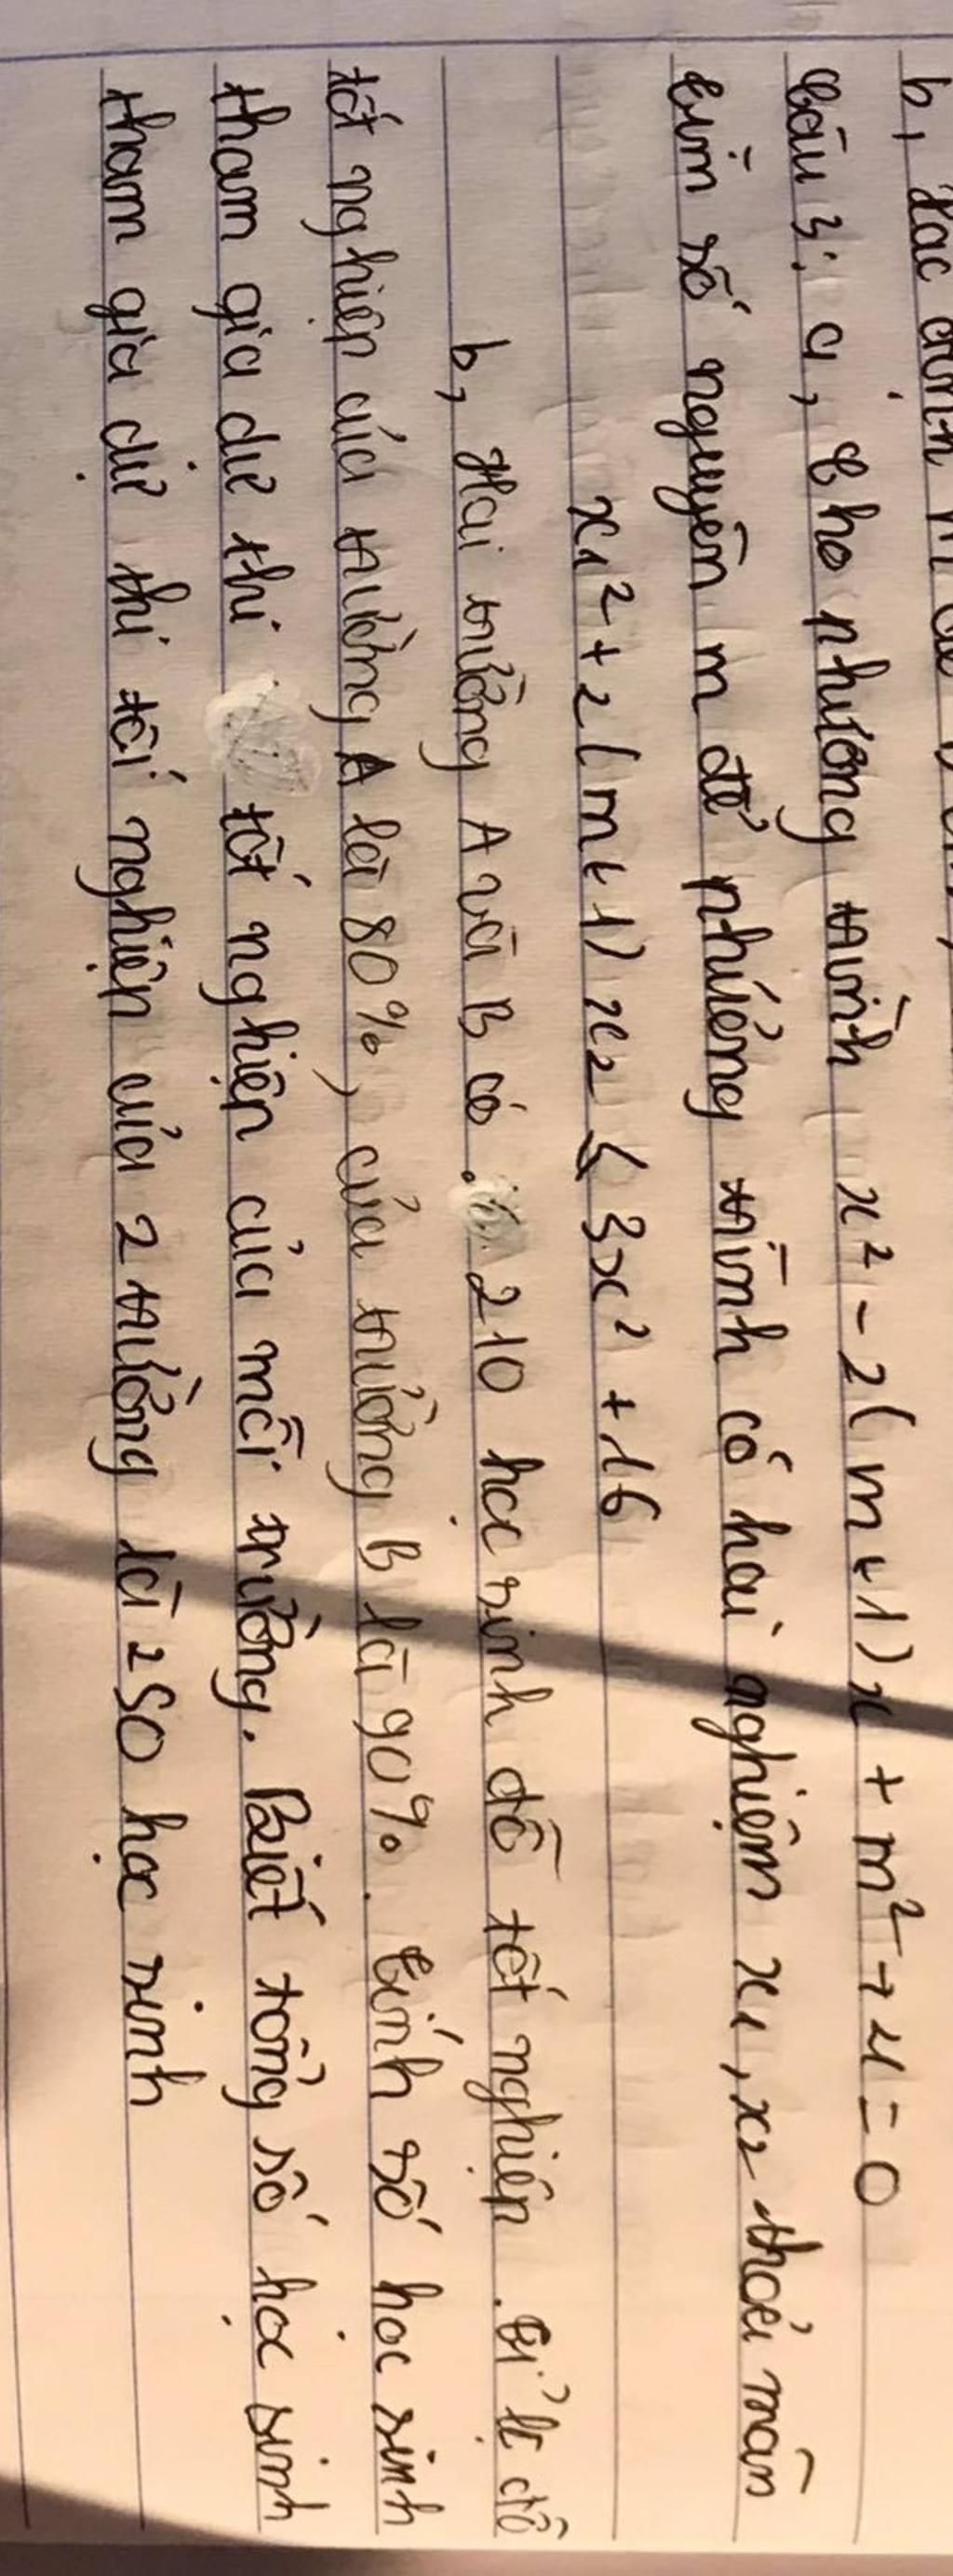 b, xác định m để
Câu 3: a, Cho phương trình x² - 2(m+1)x + m² + 4 = 0
tìm số nguyên m để phương trình có hai nghiệm x1, x2 thoả mãn
x1² + 2(m+1)x2 ≤ 3x² + 16
b, Hai trường A và B có 210 học sinh đỗ tốt nghiệp. Tỉ lệ đỗ
tốt nghiệp của trường A là 80%, của trường B là 90%. Tính số học sinh
tham gia dự thi tốt nghiệp của mỗi trường. Biết tổng số học sinh
tham gia dự thi tốt nghiệp của 2 trường là 250 học sinh